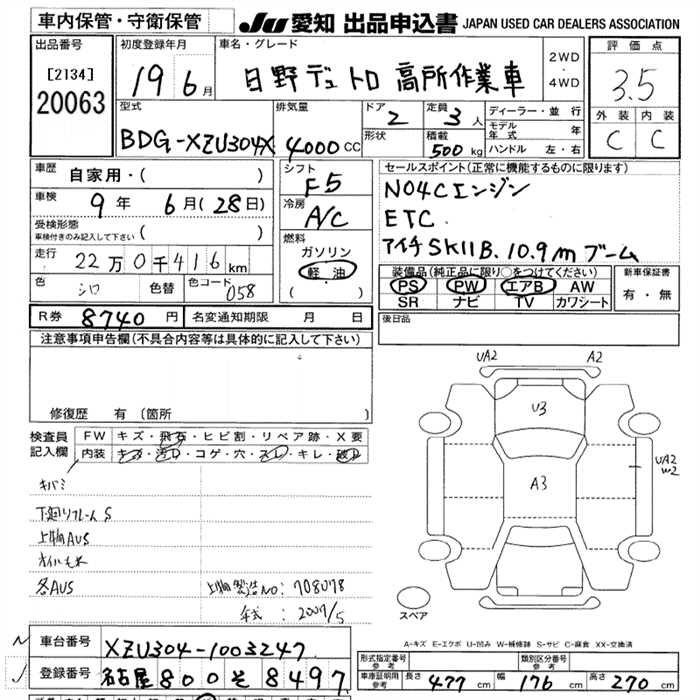 車内保管・守衛保管
JU 愛知 出品申込書 JAPAN USED CAR DEALERS ASSOCIATION
出品番号
[2134]
20063
初度登録年月
19 6月
車名・グレード
日野デュトロ 高所作業車
2WD
・
4WD
評価点
3.5
外装 内装
C C
型式
BDG-XZU304X
排気量
4000cc
ドア
2
形状
定員
3人
積載
500kg
ディーラー・並行
モデル年式 年
ハンドル 左・右
車歴
自家用・( )
車検
9年 6月(28日)
受検形態
車検付きのみ記入して下さい ( )
走行
22万0千416km
色 シロ 色替 色コード 058
シフト
F5
冷房
A/C
燃料
ガソリン
軽油
( )
セールスポイント(正常に機能するものに限ります)
N04Cエンジン
ETC.
アイチSK11B.10.9mブーム
装備品(純正品に限り○をつけてください)
PS PW エアB AW
SR ナビ TV カワシート
新車保証書
有・無
後日品
R券 8740円 名変通知期限 月 日
注意事項申告欄(不具合内容等は具体的に記入して下さい)
修復歴 有(箇所 )
検査員記入欄
FW キズ・飛石・ヒビ割・リペア跡・X要
内装 キズ・汚れ・コゲ・穴・スレ・キレ・破れ
キバミ
下廻りフレームS
上物AUS
オイルもれ
各AUS
上物製造NO:708078
年式:2007/5
UA2 A2
U3
A3
UA2
W2
スペア
A-キズ E-エクボ U-凹み W-補修跡 S-サビ C-腐食 XX-交換済
車台番号 XZU304-1003247
登録番号 名古屋800そ8497
形式指定番号
参考
類別区分番号
参考
車庫証明用
参考
長さ 477cm 幅 176cm 高さ 270cm